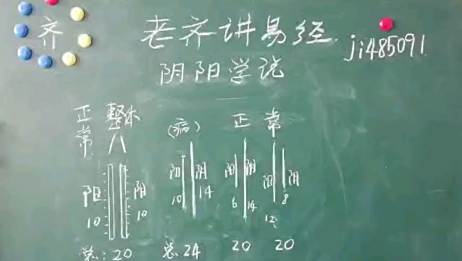 齐 老齐讲易经
ji485091
阴阳学说
正常 整体 (病) 正 常
人
阳 阴 阳 阴 阳 阴 阳 阴
10 10 10 14 6 14 12 8
总:20 总24 20 20